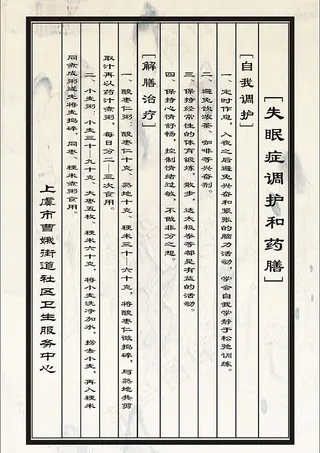 ［失眠症调护和药膳］
［自我调护］
一、定时作息，入夜之后避免兴奋和紧张的脑力活动，学会自我学静于松弛训练。
二、避免饮浓茶、咖啡等兴奋剂。
三、保持经常性的体育锻炼，散步，达太极拳等都是有益的活动。
四、保持心情舒畅，控制情绪过敏，不做非分之想。
［解膳治疗］
一、酸枣仁粥：酸枣仁十克，熟地十克，粳米三十－六十克，将酸枣仁微捣碎，与熟共煎
取汁再以药汁煮粥，每日分二—三次食用。
二、小麦粥：小麦三十－九十克、大枣五枚、粳米六十克，将小麦洗净加水，捞去小麦，再入粳米
同煮成粥或先将麦捣碎，同枣、粳米煮粥食用。
上虞市曹娥街道社区卫生服务中心